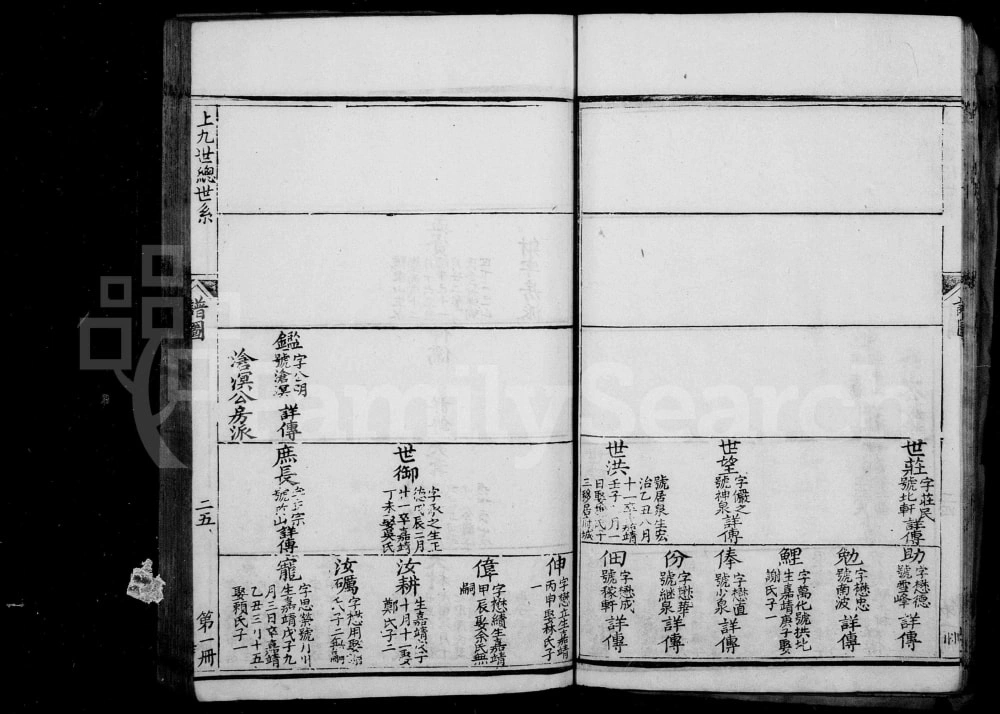 世莊
字莊民
號北軒 詳傳
世望
字儼之
號神泉 詳傳
世洪
號居泉生宏
治乙丑八月
十一卒嘉靖
壬子 月一
助
字懋德
號雪峰 詳傳
勉
字懋忠
號南波 詳傳
鯉
字萬化號拱北
生嘉靖庚子娶
謝氏子一
俸
字懋直
號少泉 詳傳
份
字懋華
號繼泉 詳傳
佃
字懋成
號稼軒 詳傳
鑑
字公明
號滄溟 詳傳
滄溟公房派
世御
字承之生正
德戊辰二月
一卒嘉靖
丁未 娶吳氏
庶長
宗
號 山 詳傳
伸
字懋立生嘉靖
丙申娶林氏子
一
偉
字懋績生嘉靖
甲辰娶余氏無
嗣
汝耕
生嘉靖 子
十月十一娶
鄭氏子二
汝礪
字懋用娶
氏子二
寵
字思榮號 川
生嘉靖戊子九
月三日卒嘉靖
乙丑三月十五
娶賴氏子一
上九世總世系
譜圖
二五
第一冊
FamilySearch